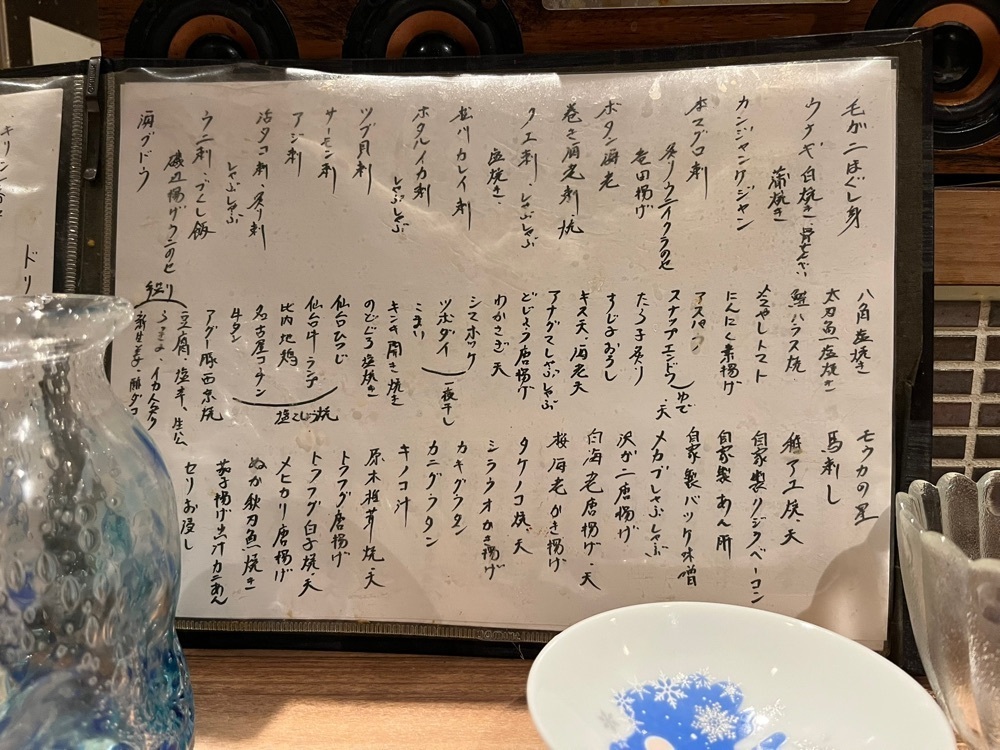 毛がにほぐし身
ウナギ白焼き・骨せんべい
蒲焼き
カンジャンケジャン
本マグロ刺
炙りウニイクラのせ
竜田揚げ
ボタン海老
巻き海老刺・焼
クエ刺・しゃぶしゃぶ
塩焼き
松川カレイ刺
ホタルイカ刺
しゃぶしゃぶ
ツブ貝刺
サーモン刺
アジ刺
活タコ刺・炙り刺
しゃぶしゃぶ
ウニ刺・づくし飯
磯辺揚げウニのせ
海ブドウ
八角塩焼き
太刀魚塩焼き
鮭ハラス焼
冷やしトマト
にんにく素揚げ
アスパラ
スナップエンドウ ゆで・天
たら子炙り
すじ子おろし
キス天・海老天
アナグマしゃぶしゃぶ
どじょう唐揚げ
わかさぎ天
シマホッケ
ツボダイ 一夜干し
こまい
キンキ開き焼き
のどぐろ塩焼き
仙台ひつじ
仙台牛ランプ
比内地鶏 塩こしょう焼
名古屋コーチン
牛タン
アグー豚西京焼
豆腐、塩辛、生公
モウカの星
馬刺し
稚アユ焼・天
自家製クジラベーコン
自家製あん肝
自家製バッケ味噌
メカブしゃぶしゃぶ
沢がニ唐揚げ
白海老唐揚げ・天
桜海老かき揚げ
タケノコ焼・天
シラウオかき揚げ
カキグラタン
カニグラタン
キノコ汁
原木椎茸焼・天
トラフグ唐揚げ
トラフグ白子焼・天
メヒカリ唐揚げ
ぬか秋刀魚焼き
茄子揚げ出汁カニあん
セリお浸し
ドリ